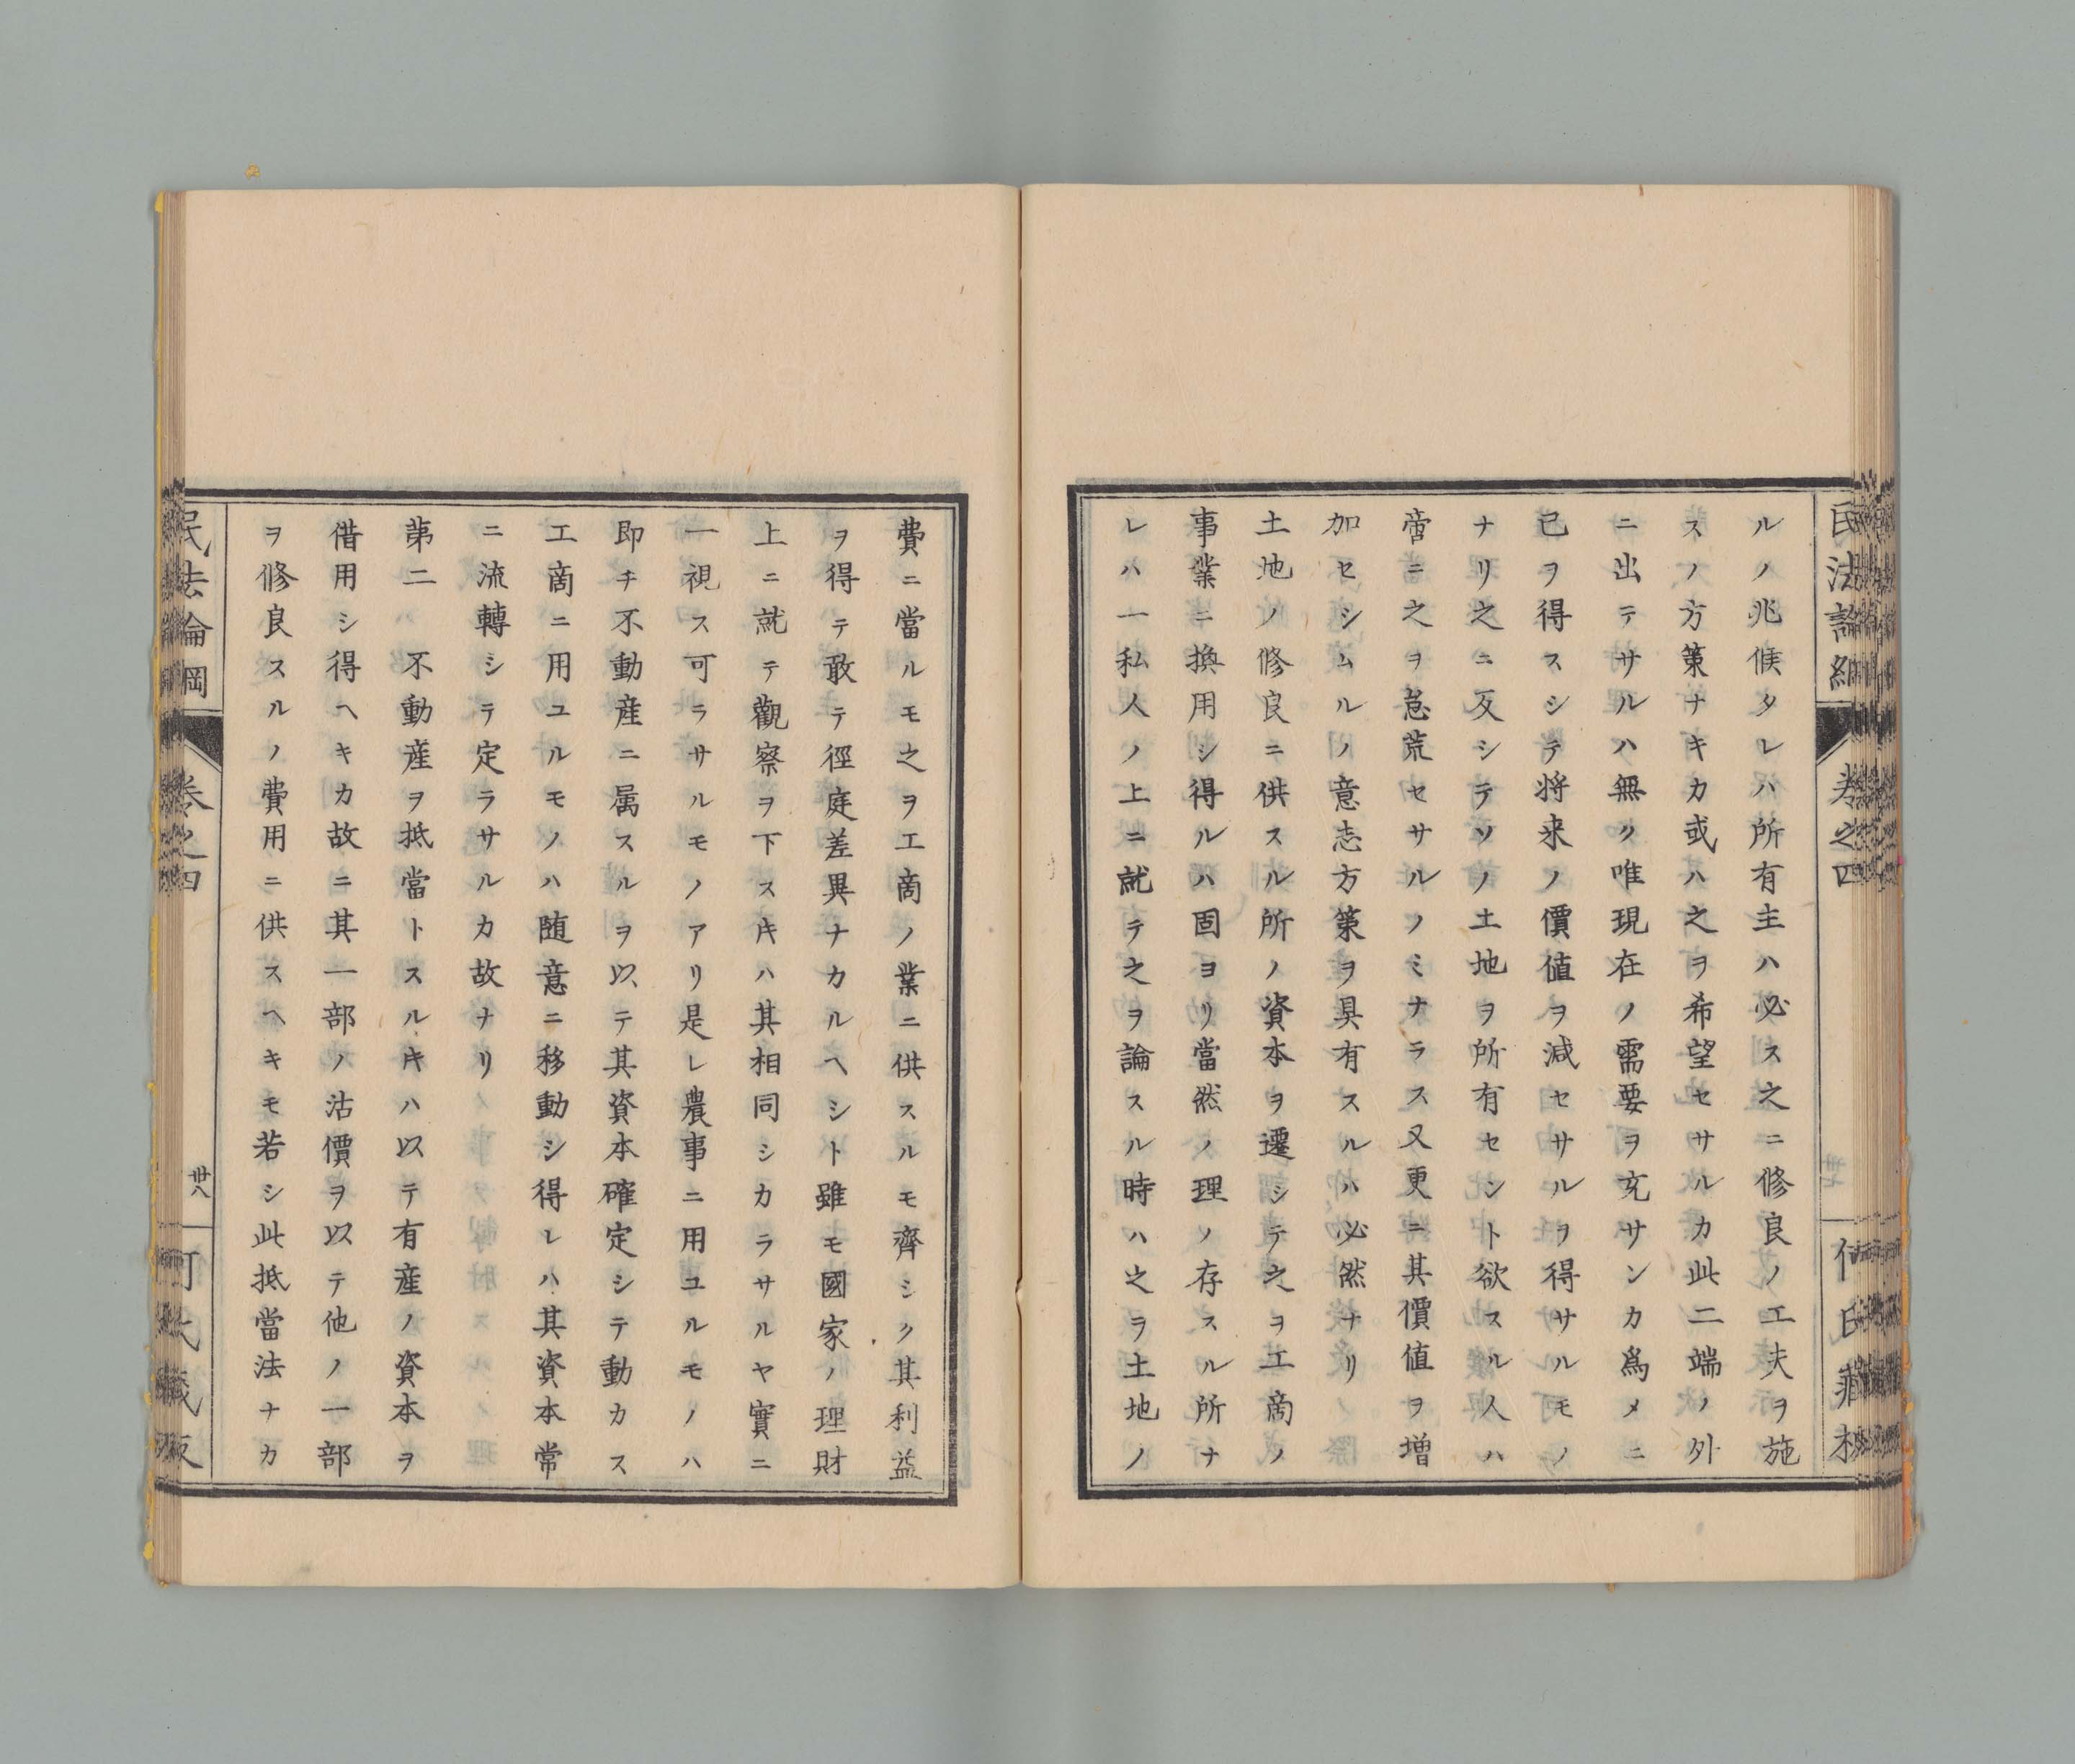 民法論綱
卷之四
何氏藏板
ルノ兆候タレハ所有主ハ必ス之ニ修良ノ工夫ヲ施
スノ方策ナキカ或ハ之ヲ希望セサルカ此二端ノ外
ニ出テサルハ無ク唯現在ノ需要ヲ充サンカ爲メニ
已ヲ得スシテ将来ノ價値ヲ減セサルヲ得サルモノ
ナリ之ニ反シテソノ土地ヲ所有セシト欲スル人ハ
啻ニ之ヲ怠荒セサルノミナラス又更ニ其價値ヲ增
加セシムルノ意志方策ヲ具有スルハ必然ナリ
土地ノ修良ニ供スル所ノ資本ヲ遷シテ之ヲ工商ノ
事業ニ換用シ得ルハ固ヨリ當然ノ理ノ存スル所ナ
レハ一私人ノ上ニ就テ之ヲ論スル時ハ之ヲ土地ノ
費ニ當ルモ之ヲ工商ノ業ニ供スルモ齊シク其利益
ヲ得テ敢テ徑庭差異ナカルヘシト雖モ國家ノ理財
上ニ就テ觀察ヲ下スキハ其相同シカラサルヤ實ニ
一視ス可ラサルモノアリ是レ農事ニ用ユルモノハ
即チ不動産ニ属スルヲ以テ其資本確定シテ動カス
工商ニ用ユルモノハ随意ニ移動シ得レハ其資本常
ニ流轉シテ定ラサルカ故ナリ
第二　不動産ヲ抵當トスルキハ以テ有産ノ資本ヲ
借用シ得ヘキカ故ニ其一部ノ沽價ヲ以テ他ノ一部
ヲ修良スルノ費用ニ供スヘキモ若シ此抵當法ナカ
民法論綱
卷之四
卅八
何氏藏板